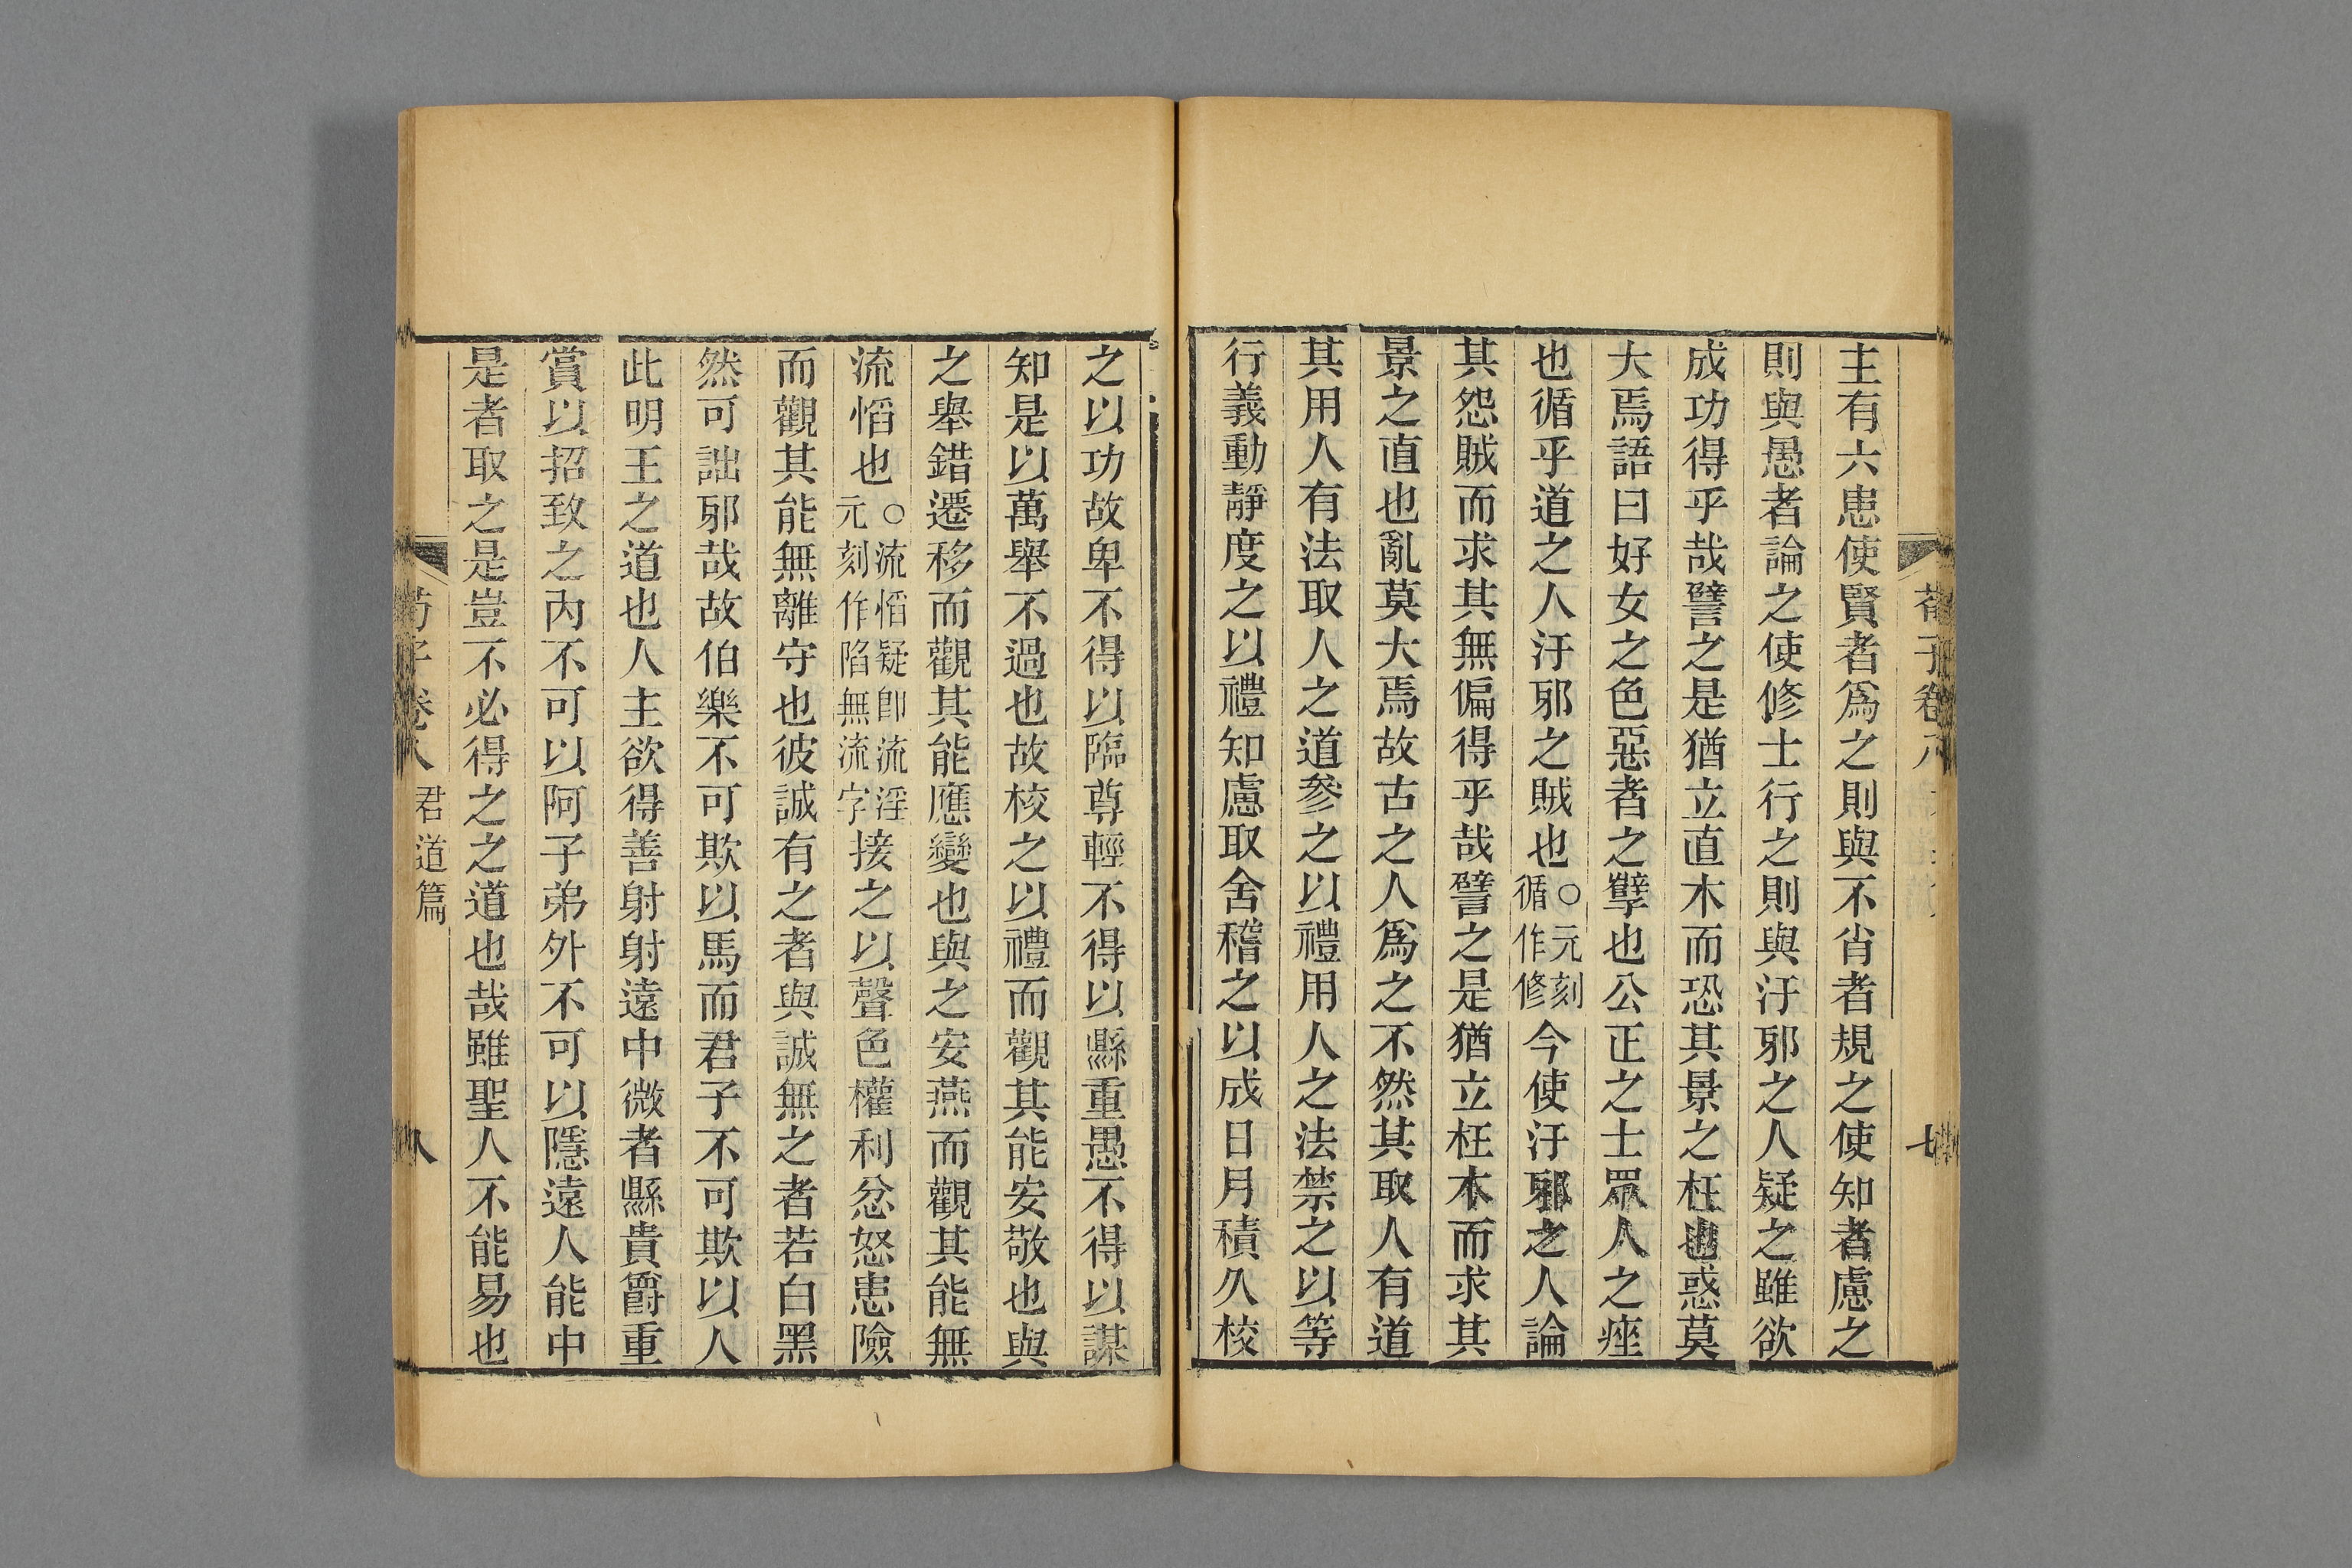 主有六患使賢者爲之則與不肖者規之使知者慮之
則與愚者論之使修士行之則與汙邪之人疑之雖欲
成功得乎哉譬之是猶立直木而恐其景之枉也惑莫
大焉語曰好女之色惡者之孽也公正之士眾人之痤
也循乎道之人汙邪之賊也○元刻循作修今使汙邪之人論
其怨賊而求其無偏得乎哉譬之是猶立枉木而求其
景之直也亂莫大焉故古之人爲之不然其取人有道
其用人有法取人之道參之以禮用人之法禁之以等
行義動靜度之以禮知慮取舍稽之以成日月積久校
荀子卷八
七
之以功故卑不得以臨尊輕不得以縣重愚不得以謀
知是以萬舉不過也故校之以禮而觀其能安敬也與
之舉錯遷移而觀其能應變也與之安燕而觀其能無
流慆也○流慆疑卽流淫元刻作陷無流字接之以聲色權利忿怒患險
而觀其能無離守也彼誠有之者與誠無之者若白黑
然可詘邪哉故伯樂不可欺以馬而君子不可欺以人
此明王之道也人主欲得善射射遠中微者縣貴爵重
賞以招致之內不可以阿子弟外不可以隱遠人能中
是者取之是豈不必得之之道也哉雖聖人不能易也
荀子卷八 君道篇
八